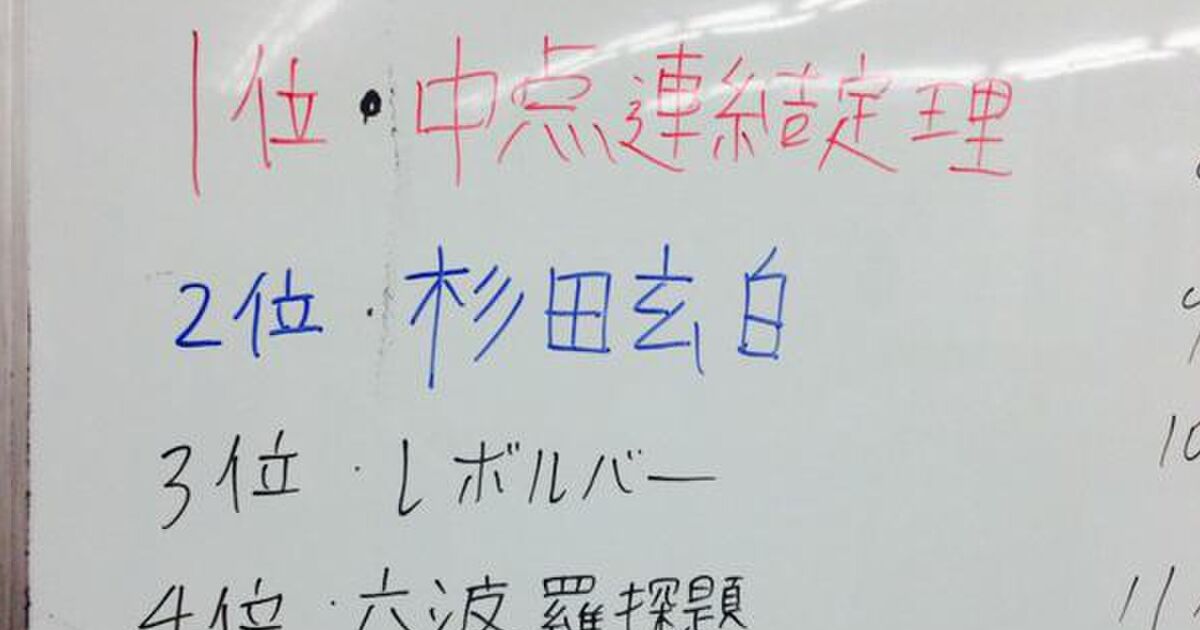 1位・中点連結定理
2位・杉田玄白
3位・レボルバー
4位・六波羅探題
10
11